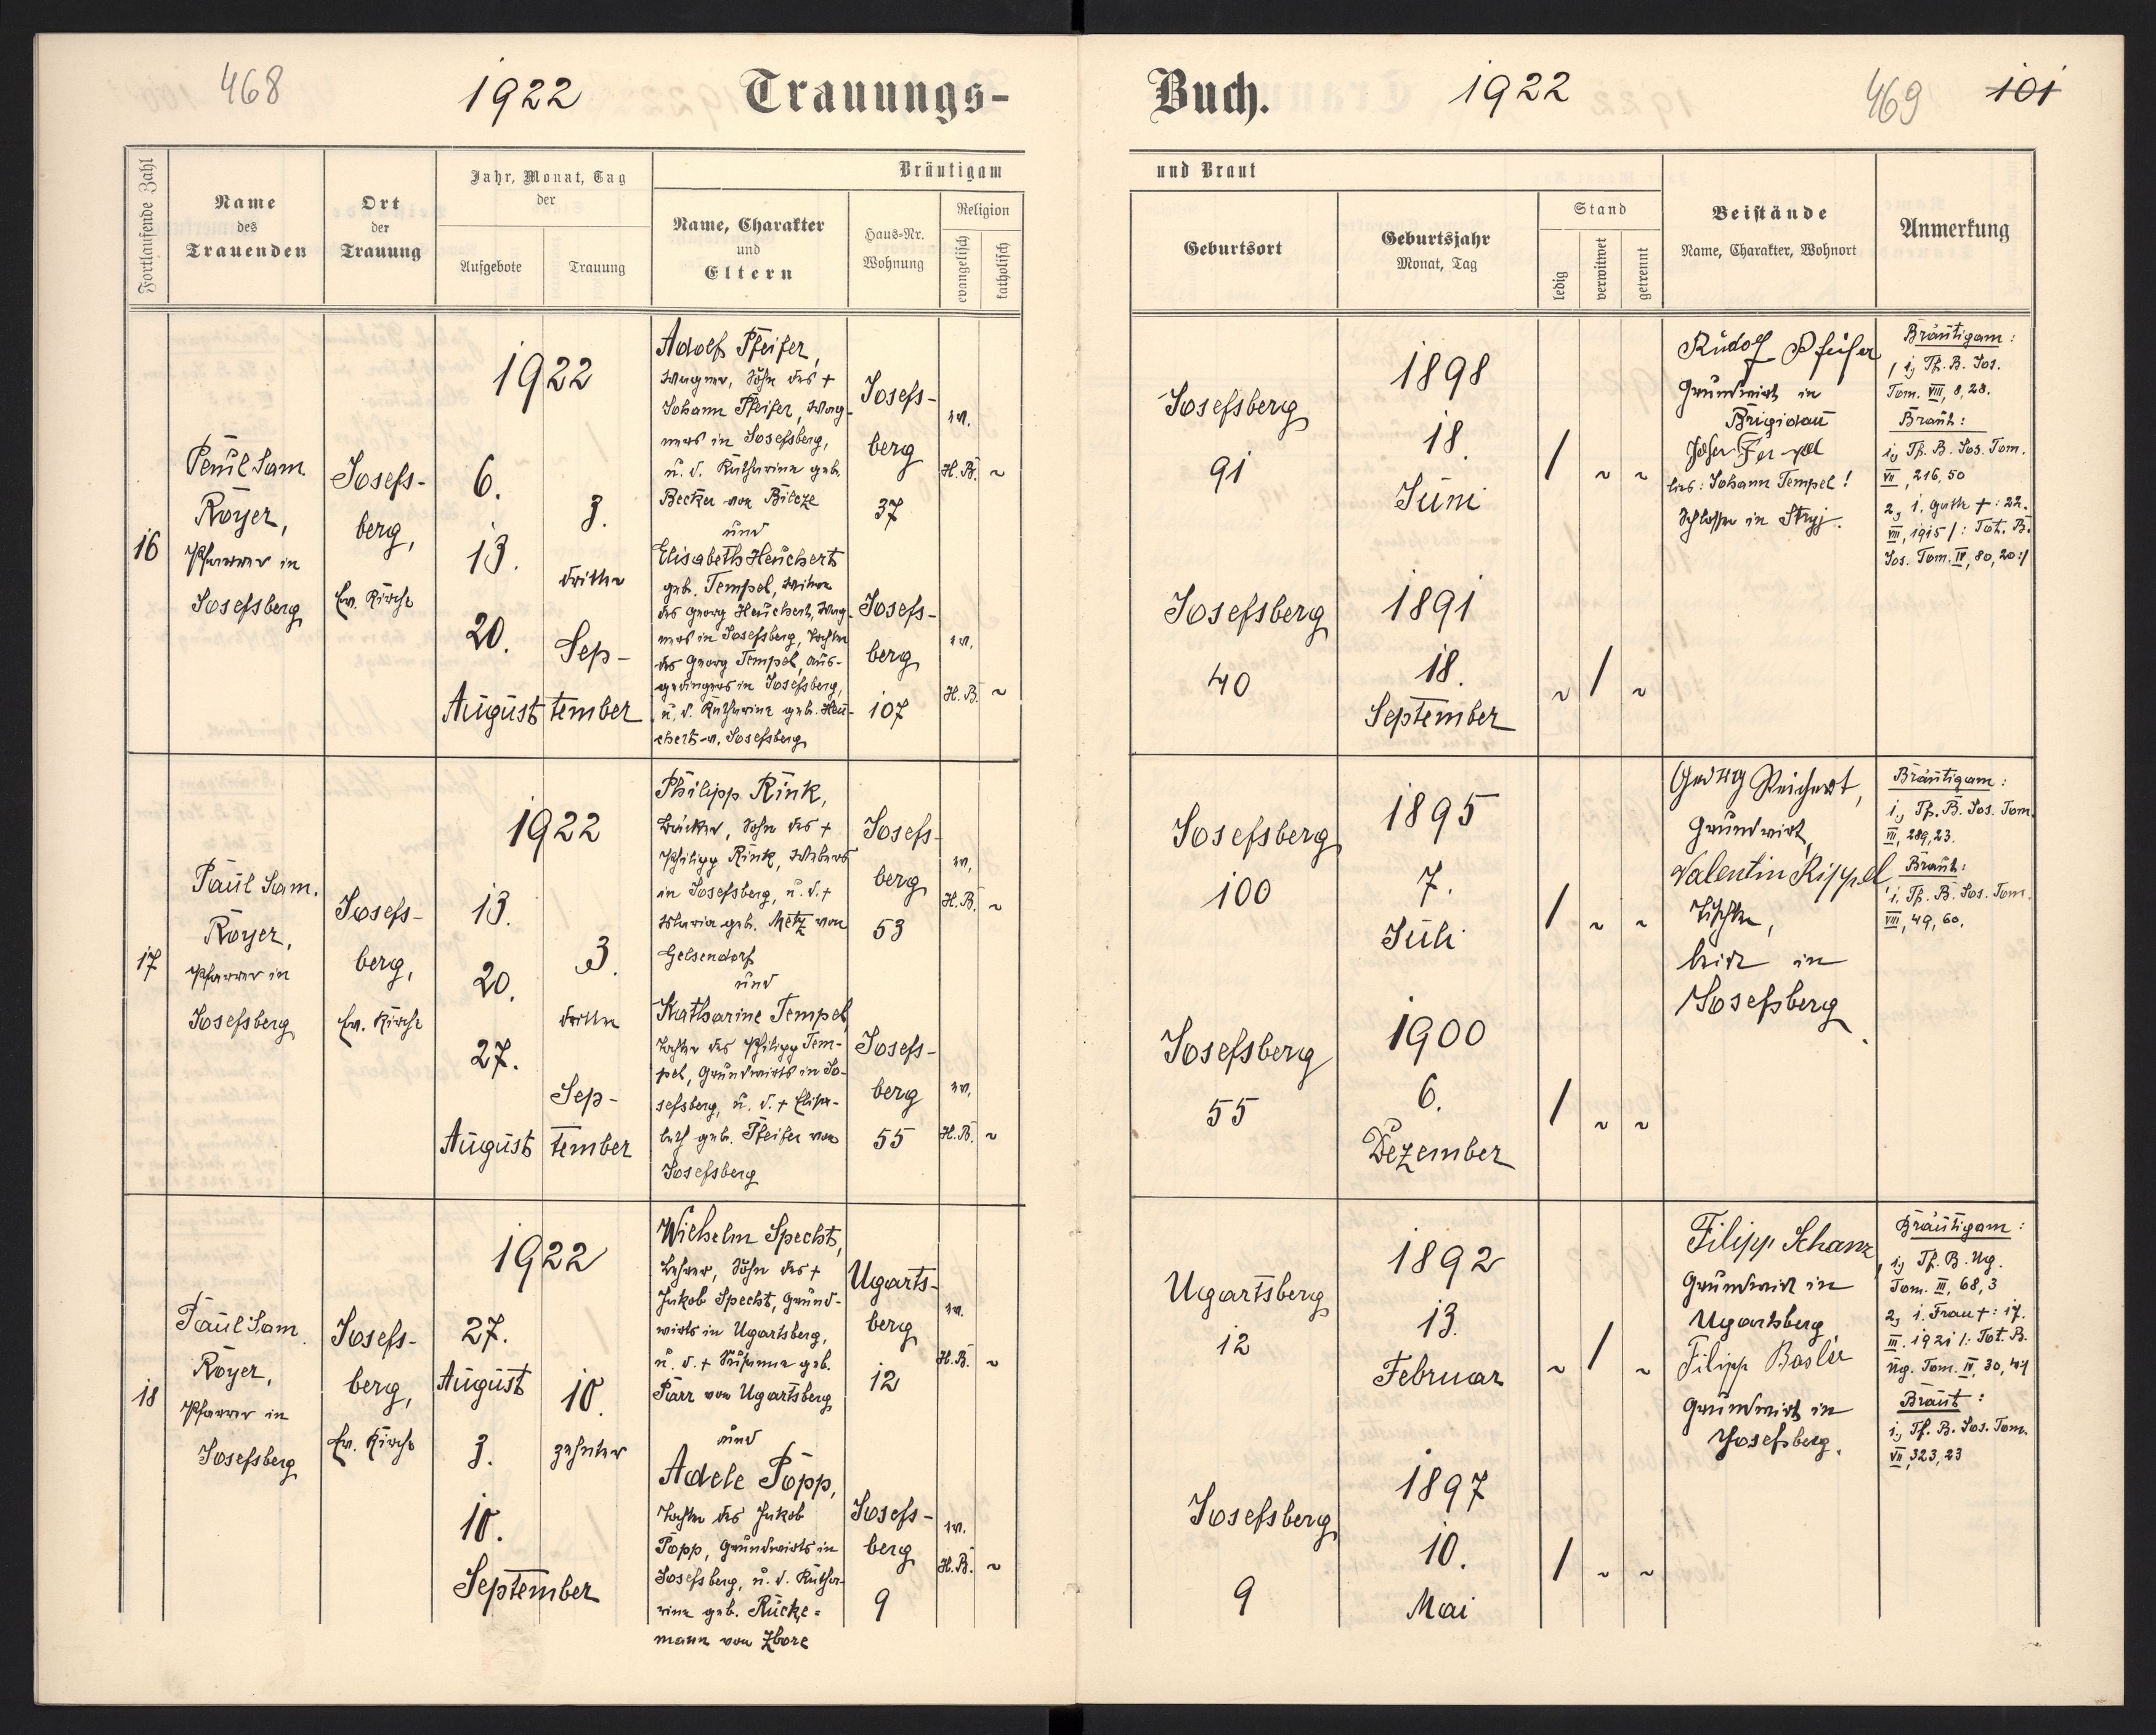 468
1922
Trauungs-
Buch.
1922
469
101
Fortlaufende Zahl
Name
des
Trauenden
Ort
der
Trauung
Jahr, Monat, Tag
der
Aufgebote
Trauung
Bräutigam
Name, Charakter
und
Eltern
Haus-Nr.
Wohnung
Religion
evangelisch
katholisch
und Braut
Geburtsort
Geburtsjahr
Monat, Tag
Stand
ledig
verwitwet
getrennt
Beistände
Name, Charakter, Wohnort
Anmerkung
16
Paul Sam.
Royer,
Pfarrer in
Josefsberg
Josefs-
berg,
Ev. Kirche
1922
6.
13.
20.
August
3.
dritter
Sep-
tember
Adolf Pfeifer,
Wagner, Sohn des +
Johann Pfeifer, Wag-
ners in Josefsberg,
u. d. Katharina geb.
Becker von Bilcze
und
Elisabeth Heuchert
geb. Tempel, Witwe
des Georg Heuchert, Wag-
ners in Josefsberg, Tochter
des Georg Tempel, Aus-
gedingers in Josefsberg,
u. d. Katharina geb. Heu-
chert v. Josefsberg
Josefs-
berg
37
Josefs-
berg
107
ev.
H.B. ~
ev.
H.B. ~
Josefsberg
91
Josefsberg
40
1898
18.
Juni
1891
18.
September
/ ~ ~
~ / ~
Rudolf Pfeifer
Grundwirt in
Brigidau
lies: Johann Tempel!
Schlosser in Stryj.
Bräutigam:
1, Tf. B. Jos.
Tom. VIII, 8, 28.
Braut:
1, Tf. B. Jos. Tom.
VII, 216, 50
2, 1. Gatte +: 22.
VIII, 1915 /: Tot. B.
Jos. Tom. IV, 80, 20:/
17
Paul Sam.
Royer,
Pfarrer in
Josefsberg
Josefs-
berg,
Ev. Kirche
1922
13.
20.
27.
August
3.
dritter
Sep-
tember
Philipp Rink,
Bäcker, Sohn des +
Philipp Rink, Webers
in Josefsberg, u. d. +
Maria geb. Metz von
Gelsendorf
und
Katharine Tempel,
Tochter des Philipp Tem-
pel, Grundwirts in Jo-
sefsberg, u. d. + Elisa-
beth geb. Pfeifer von
Josefsberg
Josefs-
berg
53
Josefs-
berg
55
ev.
H.B. ~
ev.
H.B. ~
Josefsberg
100
Josefsberg
55
1895
7.
Juli
1900
6.
Dezember
/ ~ ~
/ ~ ~
Georg Reichert,
Grundwirt,
Valentin Rippel
Tischler,
beide in
Josefsberg
Bräutigam:
1, Tf. B. Jos. Tom.
VII, 289, 23.
Braut:
1, Tf. B. Jos. Tom.
VIII, 49, 60.
18
Paul Sam.
Royer,
Pfarrer in
Josefsberg
Josefs-
berg,
Ev. Kirche
1922
27.
August
3.
10.
September
10.
zehnter
Wilhelm Specht,
Lehrer, Sohn des +
Jakob Specht, Grund-
wirts in Ugartsberg,
u. d. + Susanna geb.
Parr von Ugartsberg
und
Adele Popp,
Tochter des Jakob
Popp, Grundwirts in
Josefsberg, u. d. Katha-
rina geb. Rücke-
mann von Zbore
Ugarts-
berg
12
Josefs-
berg
9
ev.
H.B. ~
ev.
H.B. ~
Ugartsberg
12
Josefsberg
9
1892
13.
Februar
1897
10.
Mai
~ / ~
/ ~ ~
Filipp Schanz
Grundwirt in
Ugartsberg
Filipp Basler
Grundwirt in
Josefsberg.
Bräutigam:
1, Tf. B. Ug.
Tom. III, 68, 3
2, 1. Frau +: 17.
III. 1921 /: Tot. B.
Ug. Tom. IV, 30, 4:/
Braut:
1, Tf. B. Jos. Tom.
VII, 323, 23